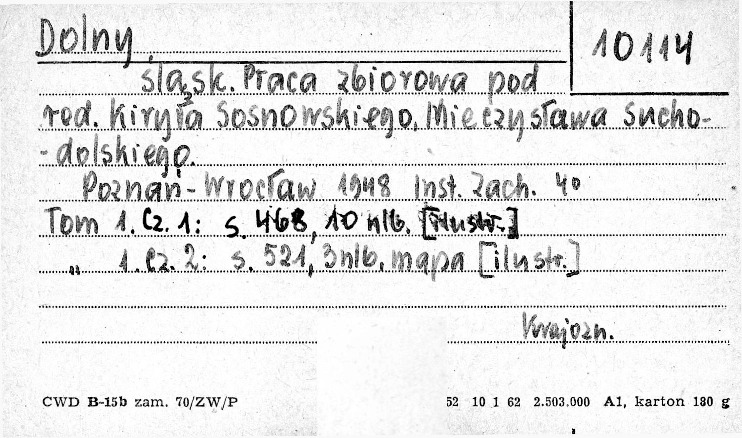 Dolny
10114
Śląsk. Praca zbiorowa pod
red. Kiryła Sosnowskiego, Mieczysława Sucho-
-dolskiego.
Poznań-Wrocław 1948 Inst. Zach. 4°
Tom 1. Cz. 1: s. 468, 10 nlb. [ilustr.]
„ 1. Cz. 2: s. 521, 3 nlb. mapa [ilustr.]
Krajozn.
CWD B-15b zam. 70/ZW/P
52 10 1 62 2.503.000 A1, karton 180 g